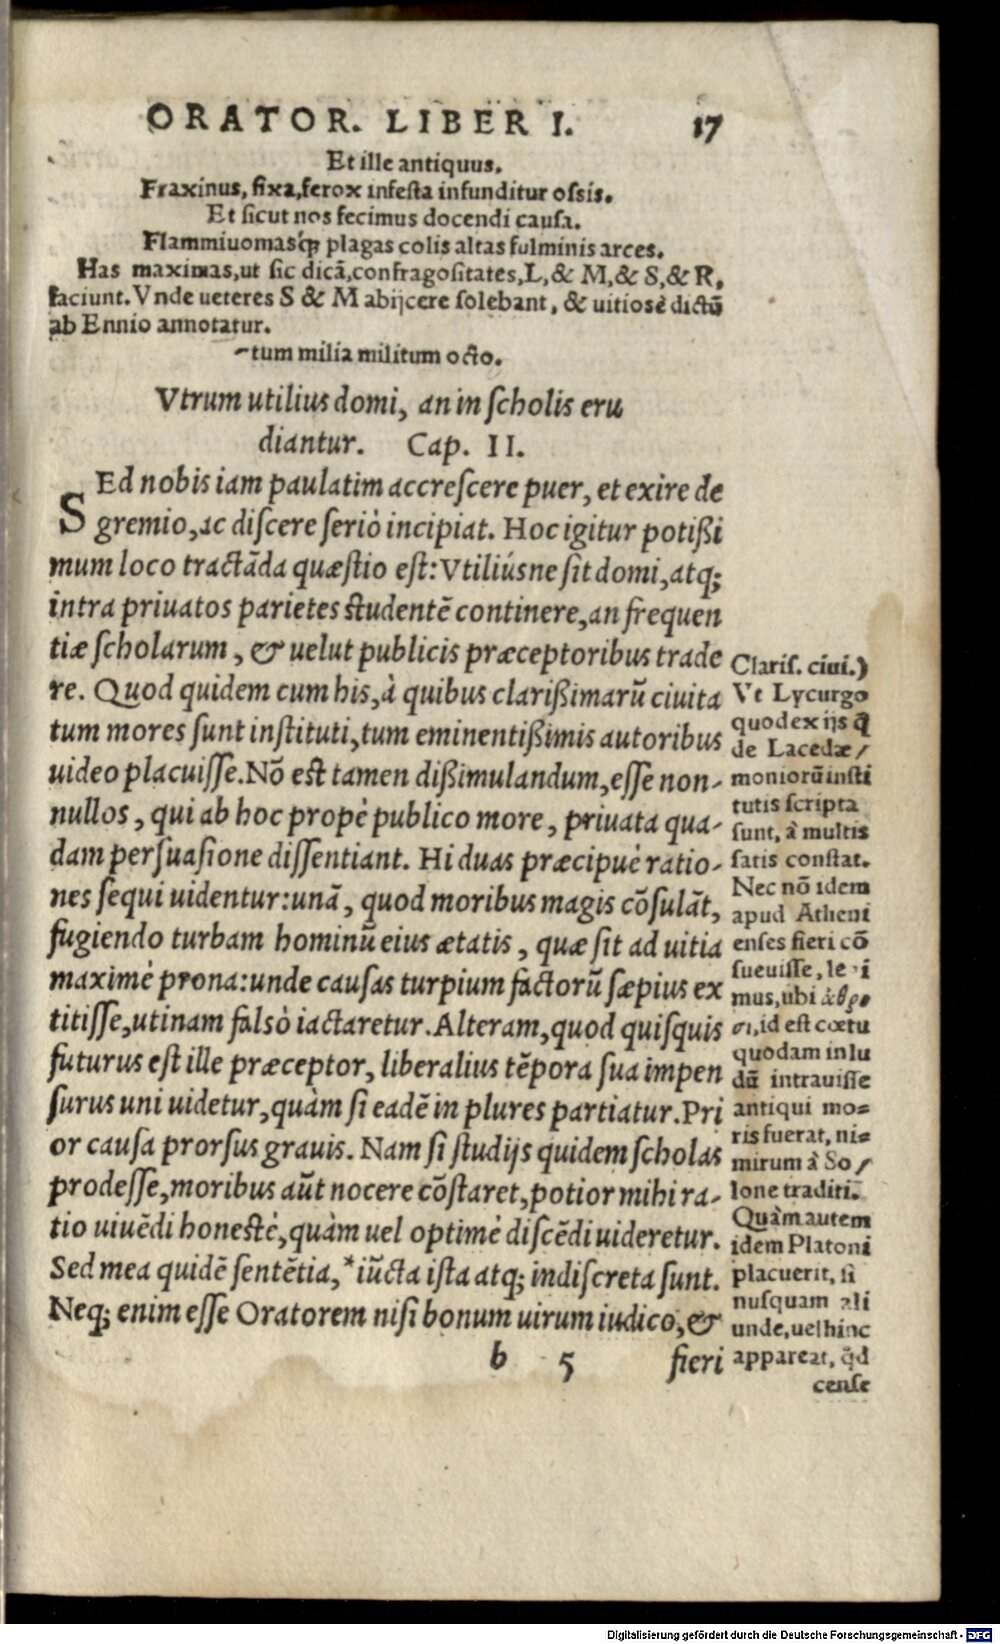 ORATOR. LIBER I. 17
Et ille antiquus.
Fraxinus, fixa, ferox infesta infunditur ossis.
Et sicut nos fecimus docendi causa.
Flammiuomasq́ꝫ plagas colis altas fulminis arces.
Has maximas, ut sic dicā, confragositates, L, & M, & S, & R,
faciunt. Vnde ueteres S & M abijcere solebant, & uitiosè dictū
ab Ennio annotatur.
-tum milia militum octo.
Vtrum utilius domi, an in scholis eru
diantur. Cap. II.
SEd nobis iam paulatim accrescere puer, et exire de
gremio, ac discere seriò incipiat. Hoc igitur potißi
mum loco tractāda quæstio est: Vtiliúsne sit domi, atq;
intra priuatos parietes studentē continere, an frequen
tiæ scholarum, & uelut publicis præceptoribus trade
re. Quod quidem cum his, à quibus clarißimarū ciuita
tum mores sunt instituti, tum eminentißimis autoribus
uideo placuisse. Nō est tamen dißimulandum, esse non-
nullos, qui ab hoc propè publico more, priuata qua-
dam persuasione dissentiant. Hi duas præcipuè ratio-
nes sequi uidentur: unā, quod moribus magis cōsulāt,
fugiendo turbam hominū eius ætatis, quæ sit ad uitia
maximè prona: unde causas turpium factorū sæpius ex
titisse, utinam falsò iactaretur. Alteram, quod quisquis
futurus est ille præceptor, liberalius tēpora sua impen
surus uni uidetur, quàm si eadē in plures partiatur. Pri
or causa prorsus grauis. Nam si studijs quidem scholas
prodesse, moribus aūt nocere cōstaret, potior mihi ra-
tio uiuēdi honestè, quàm uel optimè discēdi uideretur.
Sed mea quidē sentētia, *iūcta ista atq; indiscreta sunt.
Neq; enim esse Oratorem nisi bonum uirum iudico, &
b 5 fieri
Claris. ciui.)
Vt Lycurgo
quod ex ijs q̄
de Lacedæ/
moniorū insti
tutis scripta
sunt, à multis
satis constat.
Nec nō idem
apud Atheni
enses fieri cō
sueuisse,
mus, ubi
id est cœtu
quodam in lu
dū intrauisse
antiqui mo=
ris fuerat, ni=
mirum à So/
lone traditi.
Quàm autem
idem Platoni
placuerit, si
nusquam ali
unde, uel hinc
appareat, q̄d
cense
Digitalisierung gefördert durch die Deutsche Forschungsgemeinschaft - DFG